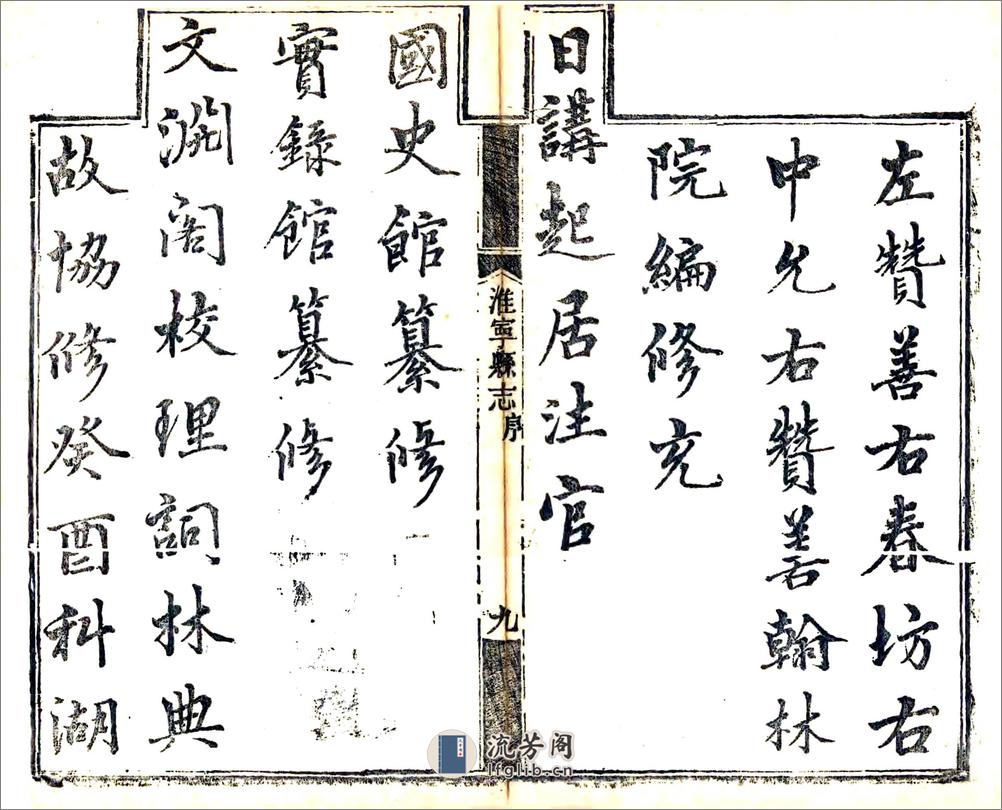 左贊善右春坊右
中允右贊善翰林
院編修充
日講起居注官
淮寧縣志序
九
國史館纂修
實錄館纂修
文淵閣校理詞林典
故協修癸酉科湖
流芳阁
lfglib.cn